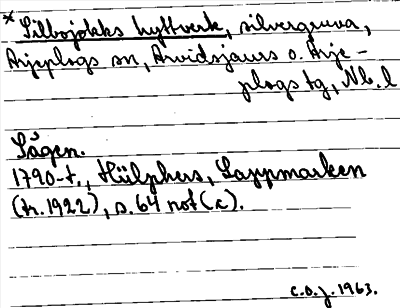 * Silbojokks hyttverk, silvergruva,
Arjeplogs sn, Arvidsjaurs o. Arje-
plogs tg, Nb. l
Sågen.
1790-t., Hülphers, Lappmarken
(tr. 1922), s. 64 not (c).
C.O.J. 1963.